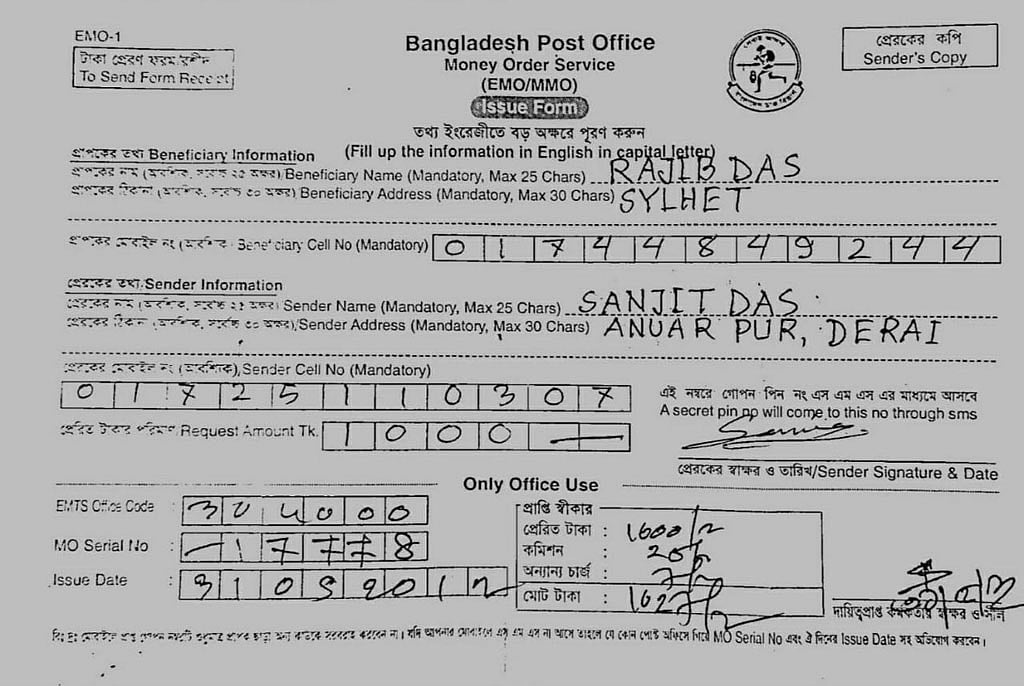 EMO-1
টাকা প্রেরণ ফরম রশীদ
To Send Form Receipt
Bangladesh Post Office
Money Order Service
(EMO/MMO)
Issue Form
প্রেরকের কপি
Sender's Copy
তথ্য ইংরেজীতে বড় অক্ষরে পূরণ করুন
(Fill up the information in English in capital letter)
প্রাপকের তথ্য Beneficiary Information
প্রাপকের নাম (আবশ্যিক, সর্বোচ্চ ২৫ অক্ষর)/Beneficiary Name (Mandatory, Max 25 Chars) RAJIB DAS
প্রাপকের ঠিকানা (আবশ্যিক, সর্বোচ্চ ৩০ অক্ষর) Beneficiary Address (Mandatory, Max 30 Chars) SYLHET
প্রাপকের মোবাইল নং (আবশ্যিক) Beneficiary Cell No (Mandatory) 01744849244
প্রেরকের তথ্য/Sender Information
প্রেরকের নাম (আবশ্যিক, সর্বোচ্চ ২৫ অক্ষর) Sender Name (Mandatory, Max 25 Chars) SANJIT DAS
প্রেরকের ঠিকানা (আবশ্যিক, সর্বোচ্চ ৩০ অক্ষর)/Sender Address (Mandatory, Max 30 Chars) ANUAR PUR, DERAI
প্রেরকের মোবাইল নং (আবশ্যিক), Sender Cell No (Mandatory)
01725110307
এই নম্বরে গোপন পিন নং এস এম এস এর মাধ্যমে আসবে
A secret pin no will come to this no through sms
প্রেরিত টাকার পরিমাণ/Request Amount Tk. 1000 —
প্রেরকের স্বাক্ষর ও তারিখ/Sender Signature & Date
Only Office Use
EMTS Office Code :
MO Serial No : –17778
Issue Date :
প্রাপ্তি স্বীকার
প্রেরিত টাকা :
কমিশন :
অন্যান্য চার্জ :
মোট টাকা :
দায়িত্বপ্রাপ্ত কর্মকর্তার স্বাক্ষর ও সীল
যদি আপনার মোবাইলে এস এম এস না আসে তাহলে যে কোন পোষ্ট অফিসে গিয়ে MO Serial No এবং ঐ দিনের Issue Date সহ অভিযোগ করবেন।